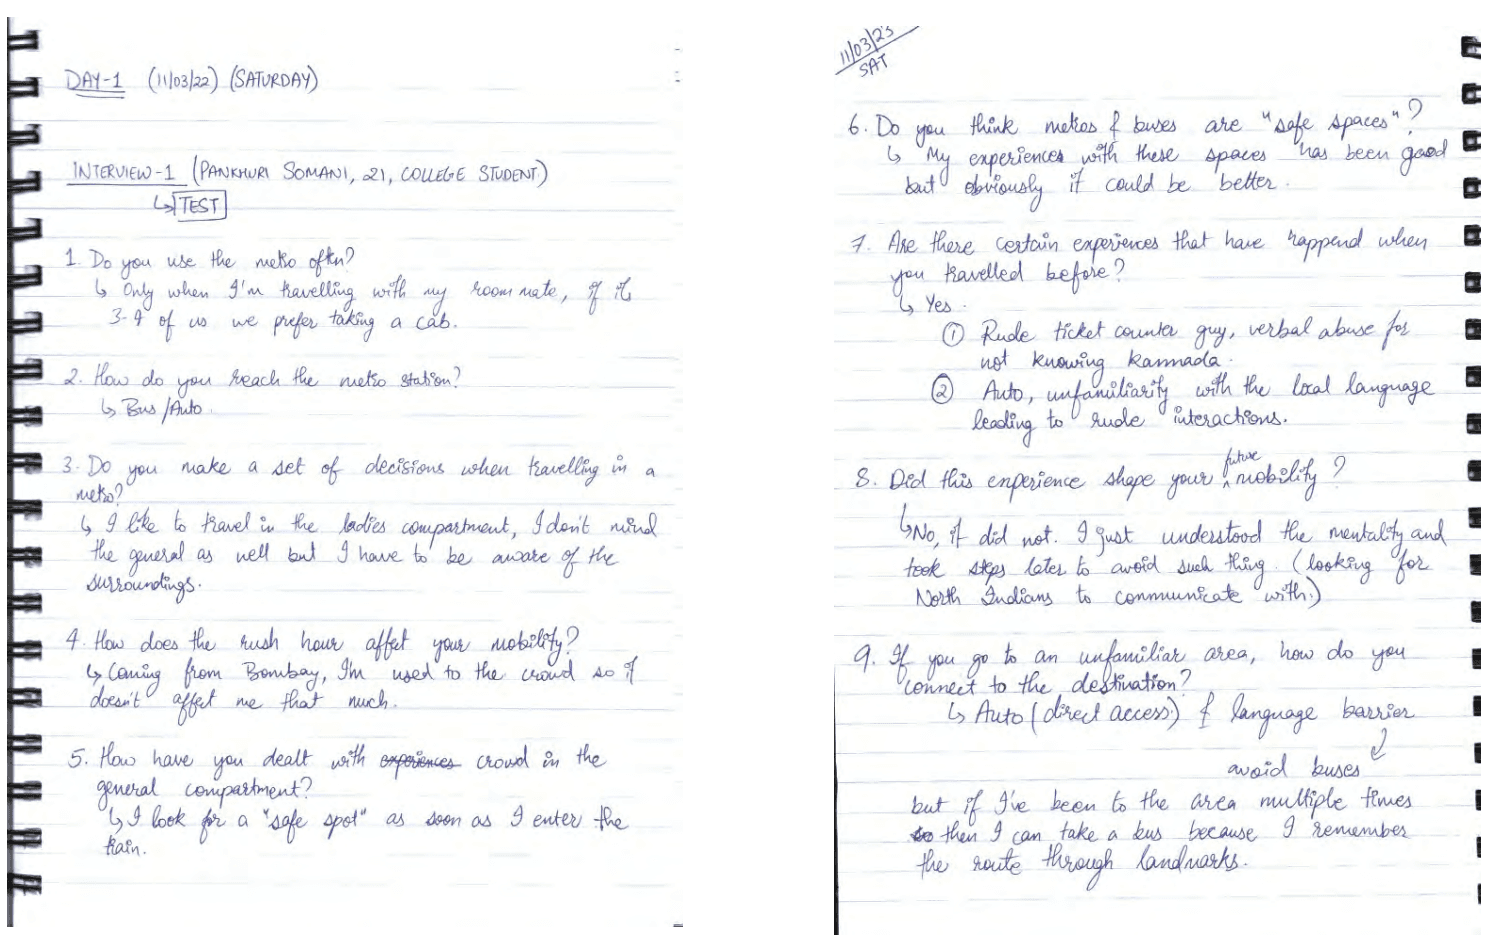 DAY-1 (11/03/22) (SATURDAY)
INTERVIEW-1 (PANKHURI SOMANI, 21, COLLEGE STUDENT)
↳ TEST
1. Do you use the metro often?
↳ Only when I'm travelling with my room mate, if it
3-4 of us we prefer taking a cab.
2. How do you reach the metro station?
↳ Bus/Auto.
3. Do you make a set of decisions when travelling in a
metro?
↳ I like to travel in the ladies compartment, I don't mind
the general as well but I have to be aware of the
surroundings.
4. How does the rush hour affect your mobility?
↳ Coming from Bombay, I'm used to the crowd so it
doesn't affect me that much.
5. How have you dealt with experiences crowd in the
general compartment?
↳ I look for a "safe spot" as soon as I enter the
train.
11/03/23
SAT
6. Do you think metros & buses are "safe spaces"?
↳ My experiences with these spaces has been good
but obviously it could be better.
7. Are there certain experiences that have happend when
you travelled before?
↳ Yes.
① Rude ticket counter guy, verbal abuse for
not knowing Kannada.
② Auto, unfamiliarity with the local language
leading to rude interactions.
8. Did this experience shape your future mobility?
↳ No, it did not. I just understood the mentality and
took steps later to avoid such thing. (looking for
North Indians to communicate with.)
9. If you go to an unfamiliar area, how do you
connect to the destination?
↳ Auto (direct access) & language barrier
avoid buses
but if I've been to the area multiple times
so then I can take a bus because I remember
the route through landmarks.